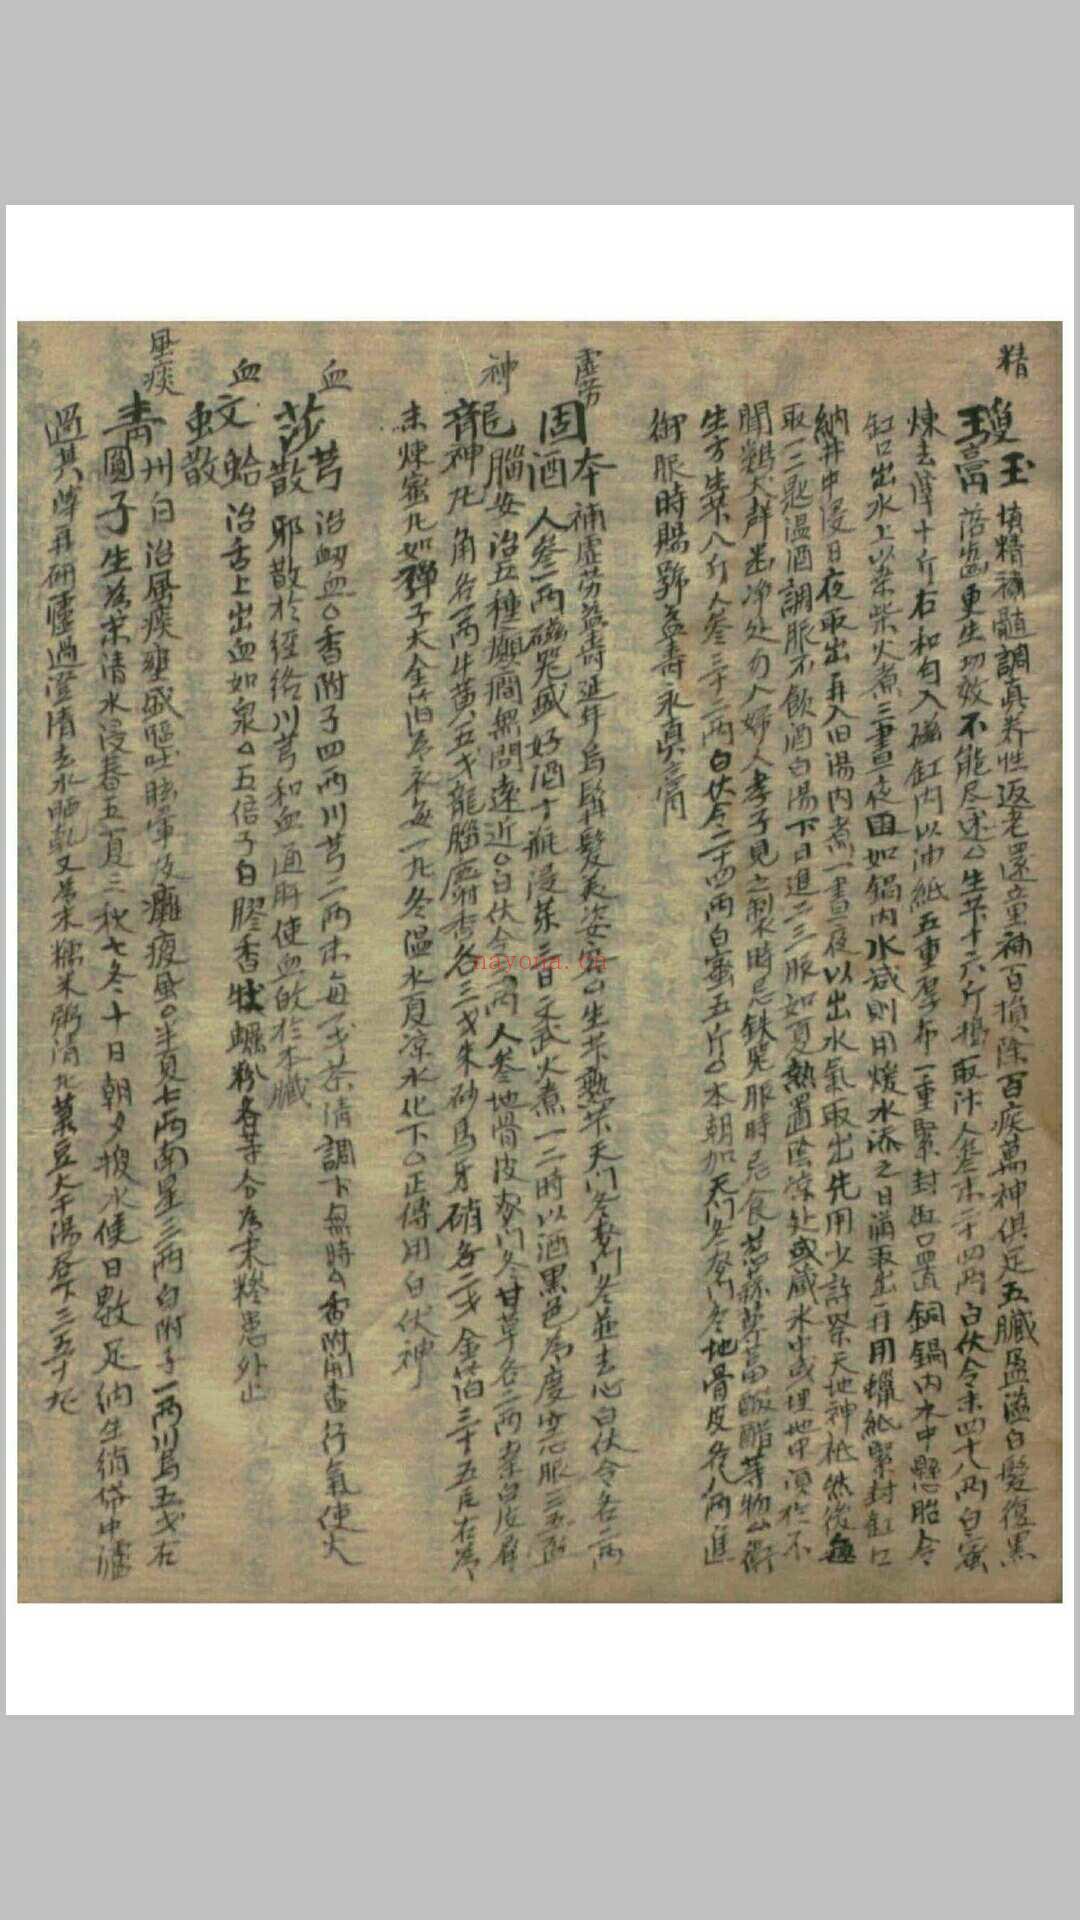 精
瓊玉膏 填精補髓調真养性返老還童補百損除百疾萬神俱足五臟盈溢白髮復黑
落齒更生功效不能尽述○生苄十六斤搗取汁人參末二十四兩白伏令末四十八兩白蜜
煉去滓十斤右和勻入磁缸內以油紙五重厚布一重緊封缸口置銅鍋內水中懸胎令
缸口出水上以桑柴火煮三晝夜因如鍋內水减則用煖水添之日滿取出再用蠟紙緊封缸口
納井中浸一日夜取出再入旧湯內煮一晝夜以出水氣取出先用少許祭天地神祇然後每
取一二匙溫酒調服不飲酒白湯下日進二三服如夏熱置陰凉处或藏水中或埋地中須於不
聞鷄犬声幽净处勿令婦人孝子見之製時忌鉄器服時忌食葱蒜蘿葍酸醋等物
生方生苄八斤人參三十二兩白伏令二十四兩白蜜五斤○本朝加天門冬麥門冬地骨皮各八兩進
御服時賜號益壽永真膏
虛劳
固本酒 補虛劳益壽延年烏鬚髮美姿容○生苄熟苄天門冬麥門冬並去心白伏令各二兩
人參一兩磁器盛好酒十瓶浸茱三日文武火煮一二時以酒黑色為度空心服三五盃
神
龍腦安神丸 治五種癲癎無問遠近○白伏令三兩人參地骨皮麥門冬甘草各二兩桑白皮犀
角各一兩牛黃五戈龍腦麝香各三戈朱砂馬牙硝各二戈金箔三十五片右為
末煉蜜丸如彈子大金箔為衣每一丸冬溫水夏凉水化下○正傳用白伏神
血
莎芎散 治衂血○香附子四兩川芎二兩末每一戈茶淸調下無時○香附開鬱行氣使火
邪散於經絡川芎和血通肝使血皈於本臟
血
蚊蛤散 治舌上出血如泉○五倍子白膠香牡蠣粉各等分為末糝患処止
風痰
青州白圓子 治風痰壅盛嘔吐眩暈及癱瘓風○半夏七兩南星三兩白附子二兩川烏五戈右
生為末淸水浸春五夏三秋七冬十日朝夕換水候日數足納生絹俗中濾
過其滓再研濾過澄淸去水晒乾又為末糯米粥淸丸菉豆大干湯吞下三五十丸
nayona.cn